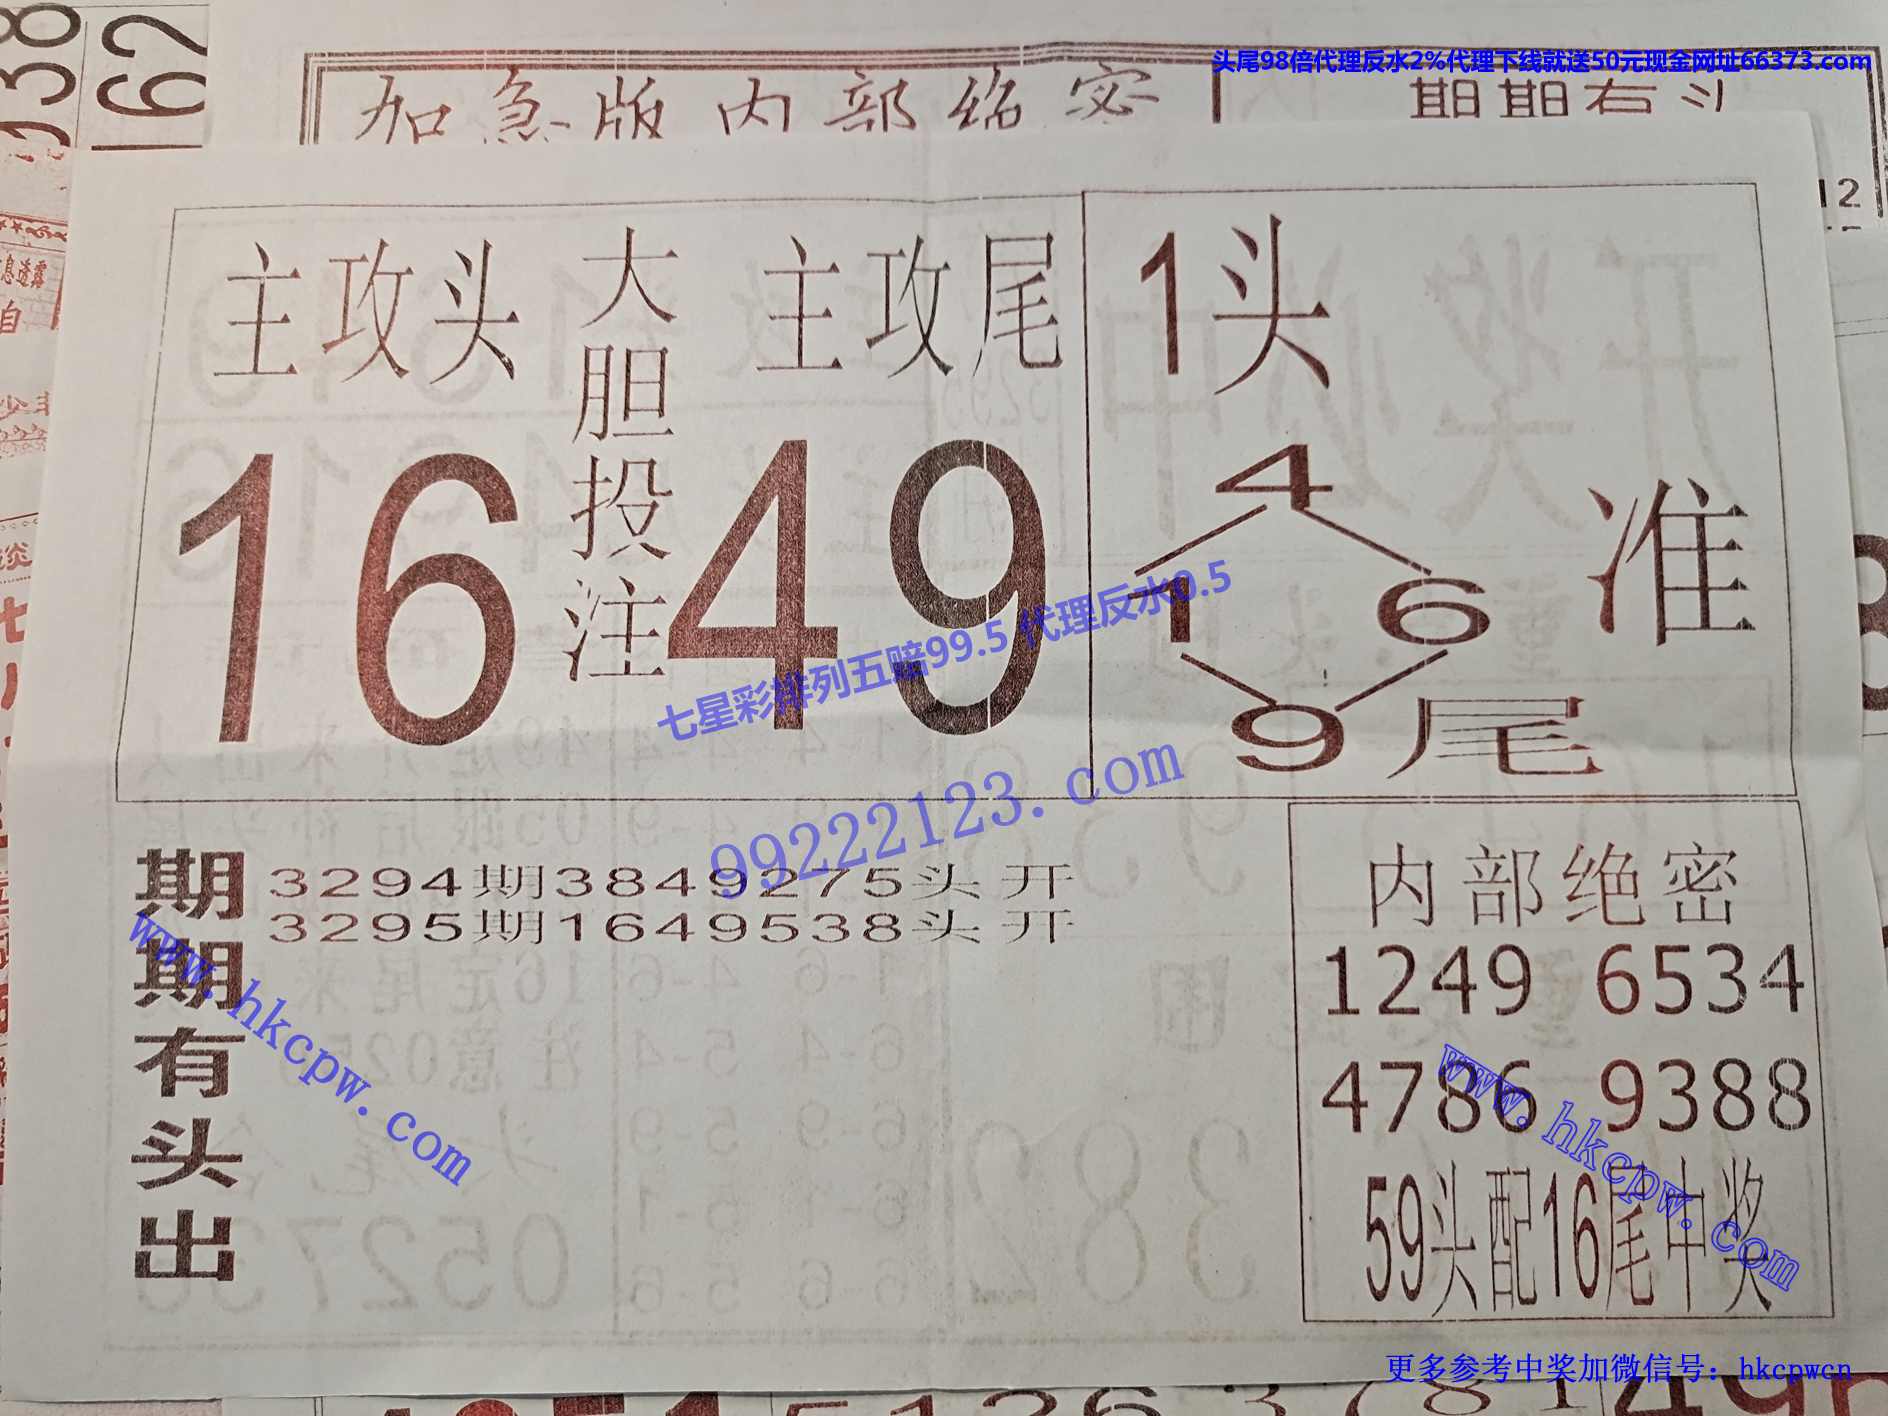 938
62
头尾98倍代理反水2%代理下线就送50元现金网址66373.com
加急版内部绝密
期期有头
12
息透露
自
主攻头
大胆投注
主攻尾
16
49
1头
4
1 6
9尾
准
七星彩排列五赔99.5 代理反水0.5
99222123.com
期期有头出
3294期3849275头开
3295期1649538头开
www.hkcpw.com
内部绝密
1249 6534
4786 9388
59头配16尾中奖
www.hkcpw.com
更多参考中奖加微信号：hkcpwcn